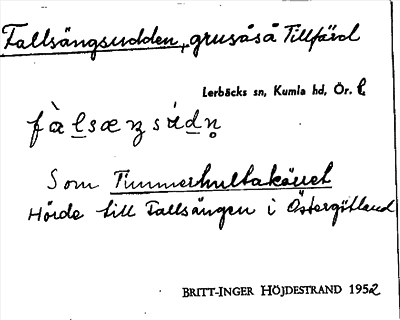 Fallsängsudden, grusåså Tillfärd
Lerbäcks sn, Kumla hd, Ör. l.
Som Timmerhultakärret
Hörde till Fallsängen i Östergötland
BRITT-INGER HÖJDESTRAND 1952